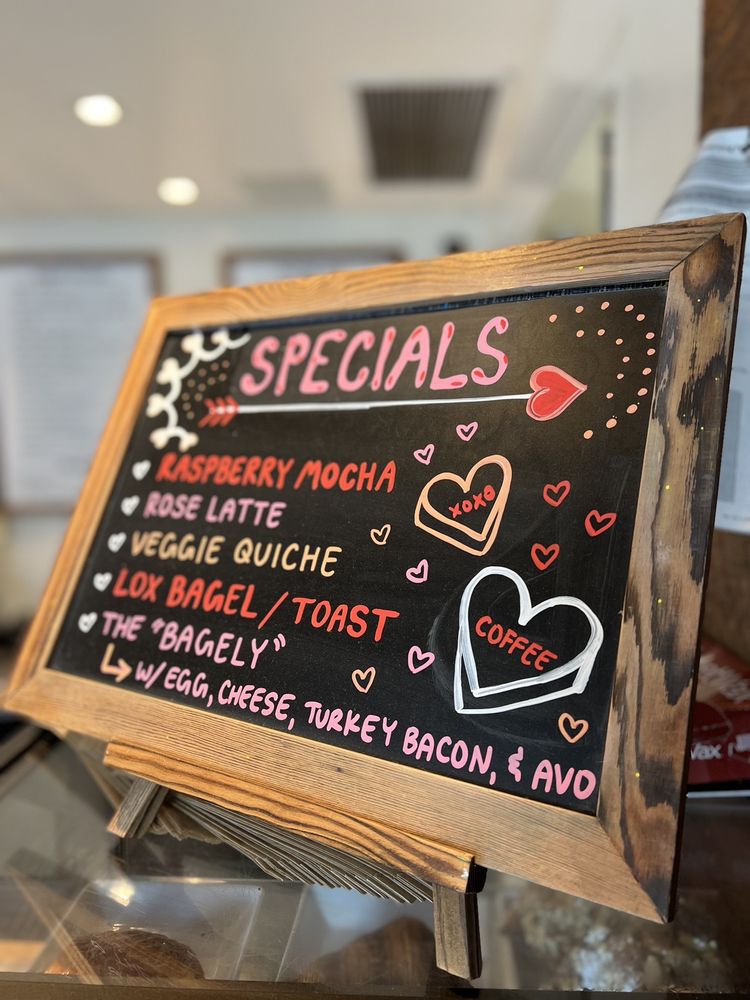 SPECIALS
RASPBERRY MOCHA
ROSE LATTE
VEGGIE QUICHE
LOX BAGEL / TOAST
THE "BAGELY"
W/ EGG, CHEESE, TURKEY BACON, & AVO
XOXO
COFFEE